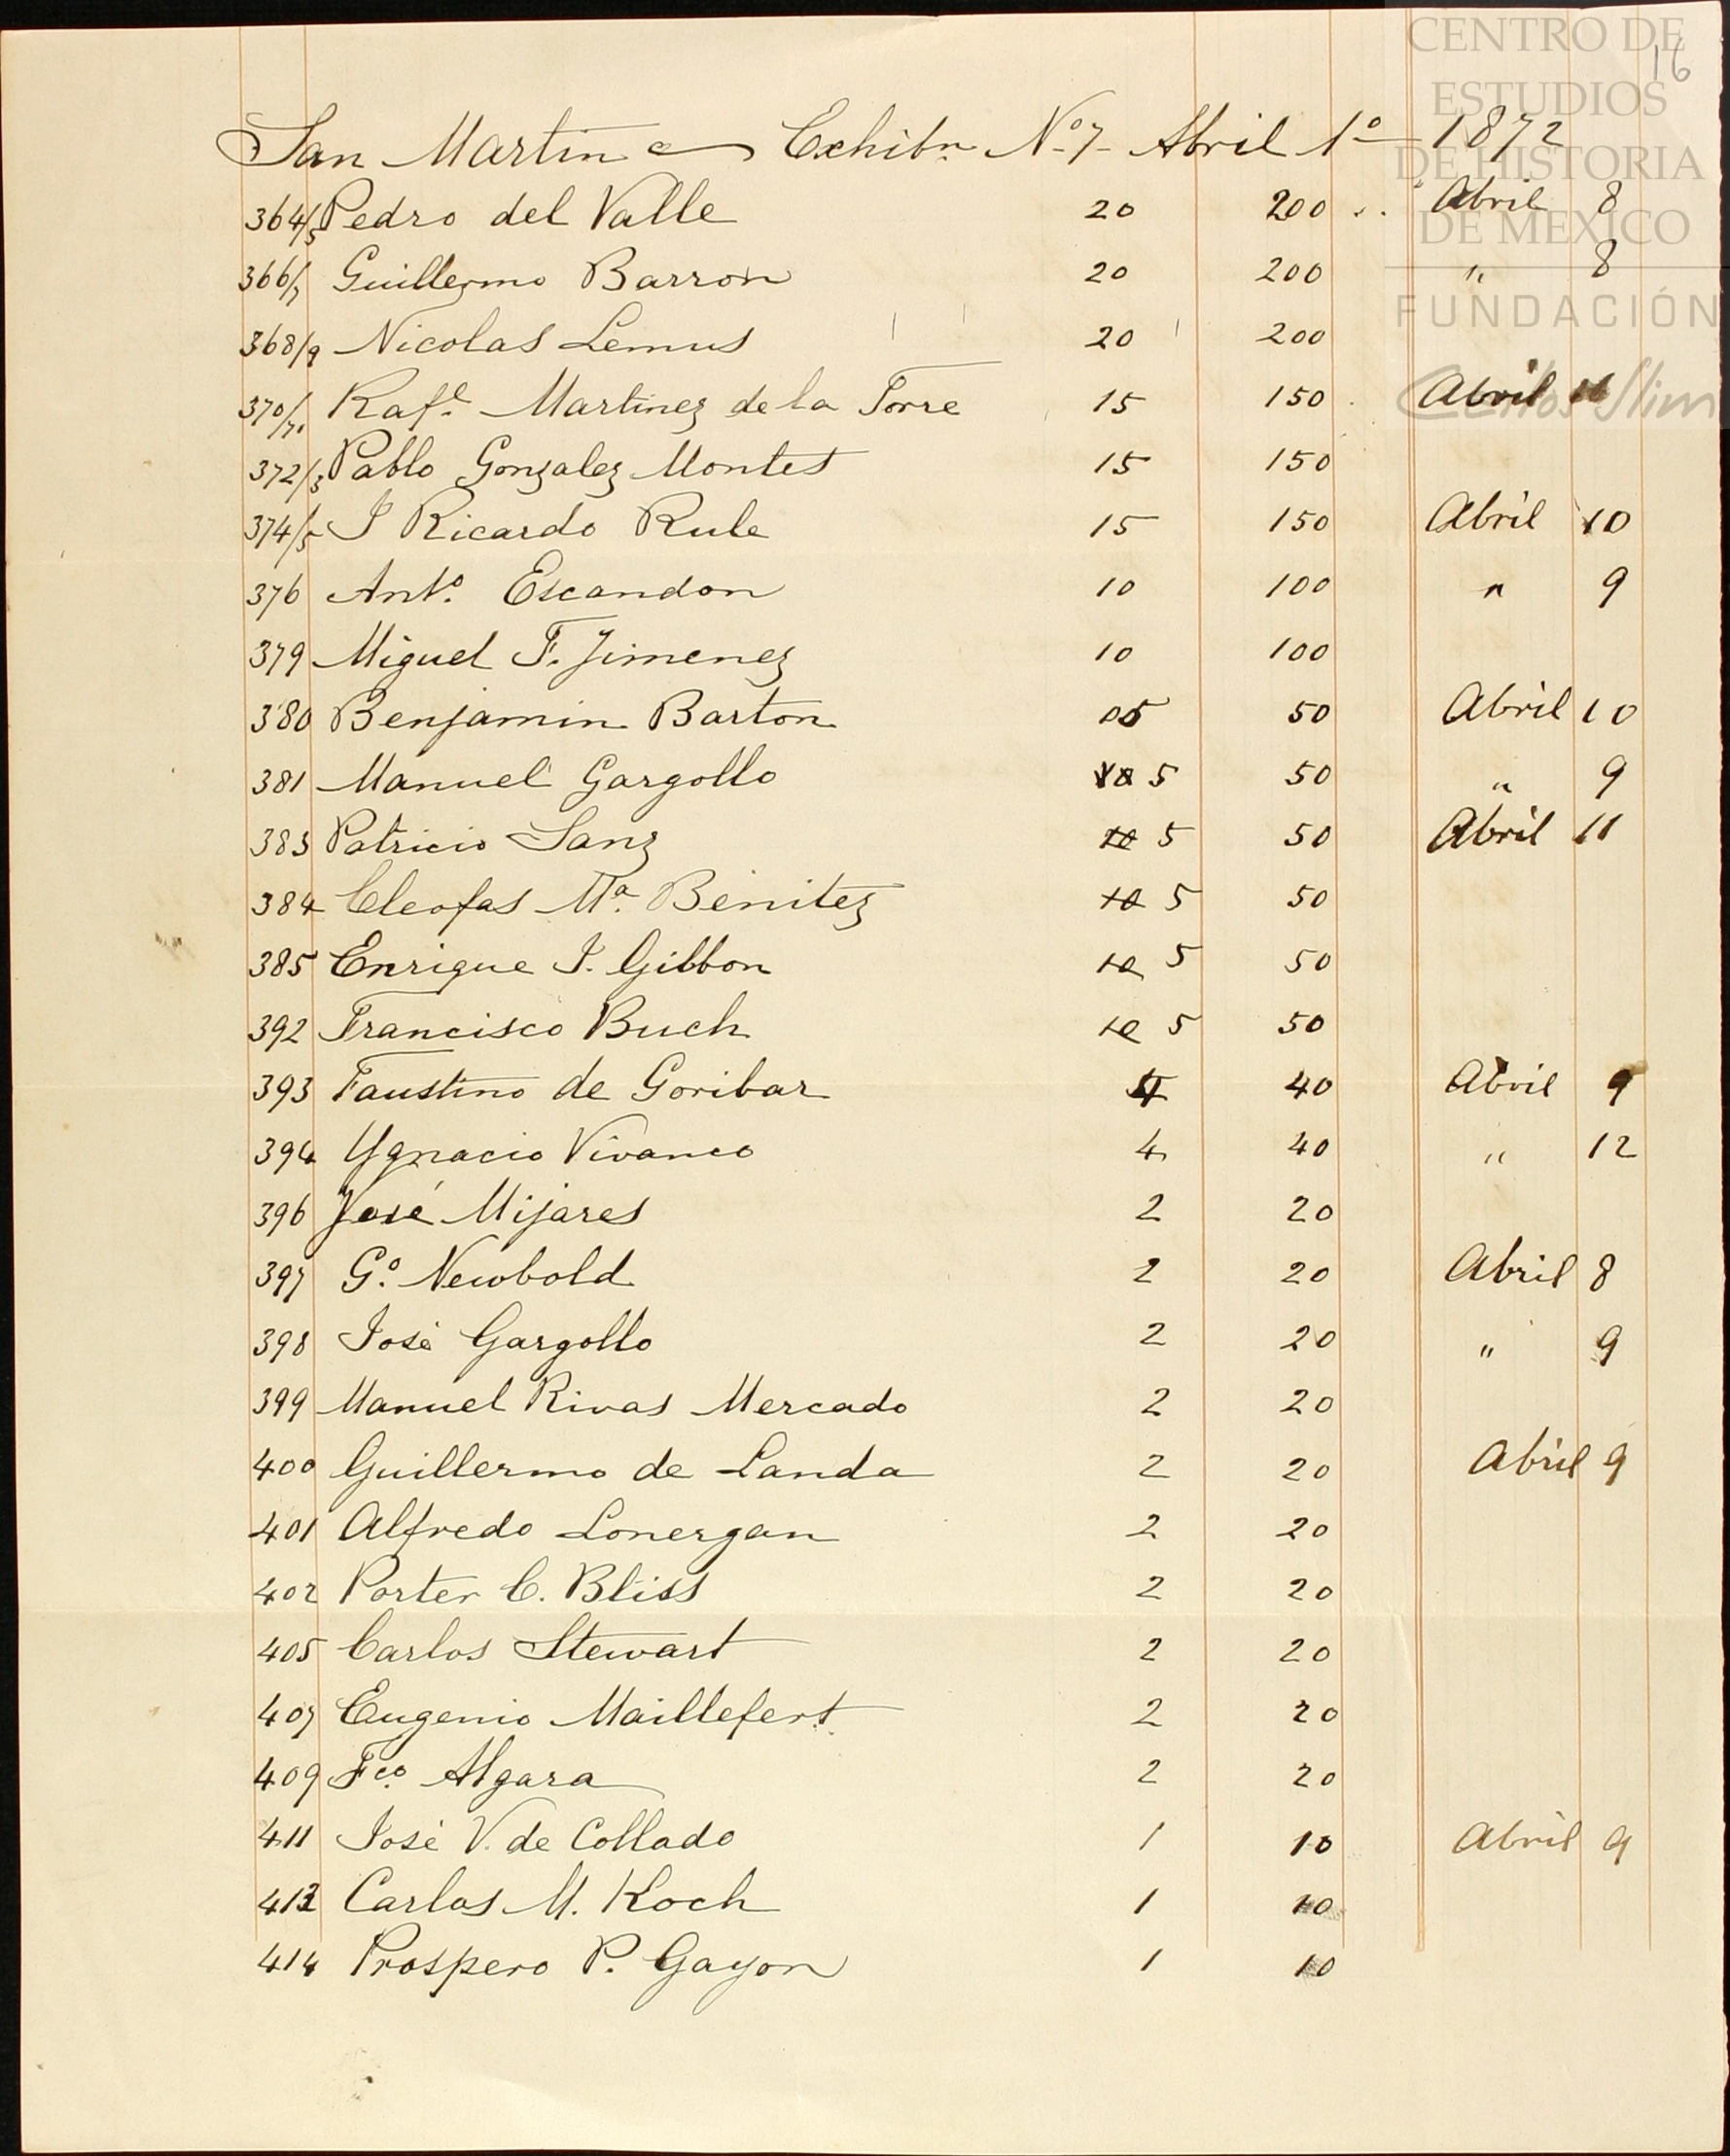 CENTRO DE
ESTUDIOS
DE HISTORIA
DE MEXICO
FUNDACIÓN
Carlos Slim
16
San Martin Exhibn. No. 7 - Abril 1o 1872
364/5 Pedro del Valle 20 200 Abril 8
366/7 Guillermo Barron 20 200 " 8
368/9 Nicolas Lemus 20 200
370/71 Rafl. Martinez de la Torre 15 150 Abril 11
372/3 Pablo Gonzalez Montes 15 150
374/5 J Ricardo Rule 15 150 Abril 10
376 Anto. Escandon 10 100 " 9
379 Miguel F. Jimenez 10 100
380 Benjamin Barton 05 50 Abril 10
381 Manuel Gargollo 10 5 50 " 9
383 Patricio Sanz 10 5 50 Abril 11
384 Cleofas Ma. Benitez 10 5 50
385 Enrique J. Gibbon 10 5 50
392 Francisco Buch 10 5 50
393 Faustino de Goribar 4 40 Abril 9
394 Ygnacio Vivanco 4 40 " 12
396 José Mijares 2 20
397 Go. Newbold 2 20 Abril 8
398 José Gargollo 2 20 " 9
399 Manuel Rivas Mercado 2 20
400 Guillermo de Landa 2 20 Abril 9
401 Alfredo Lonergan 2 20
402 Porter C. Bliss 2 20
405 Carlos Stewart 2 20
407 Eugenio Maillefert 2 20
409 Fco. Algara 2 20
411 José V. de Collado 1 10 Abril 9
413 Carlos M. Koch 1 10
414 Prospero P. Gayon 1 10